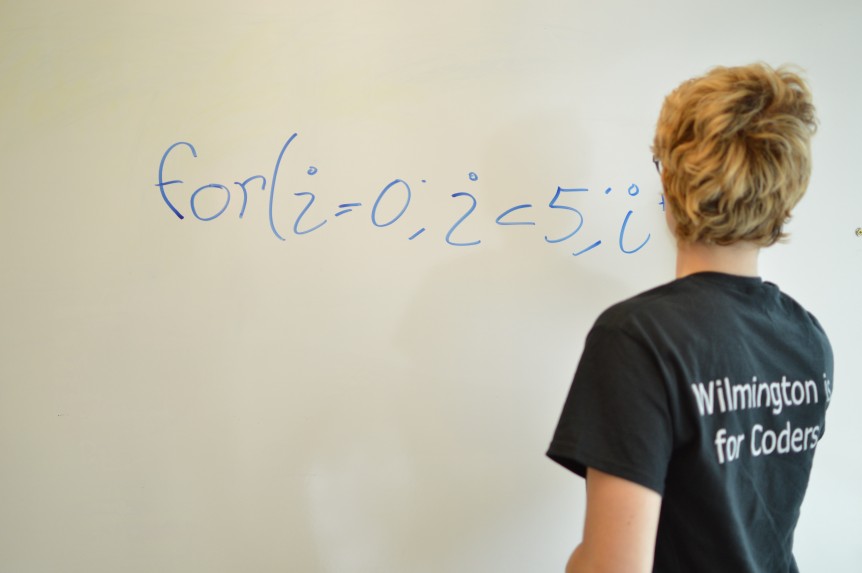 for(i=0; i<5; i+
Wilmington is
for Coders